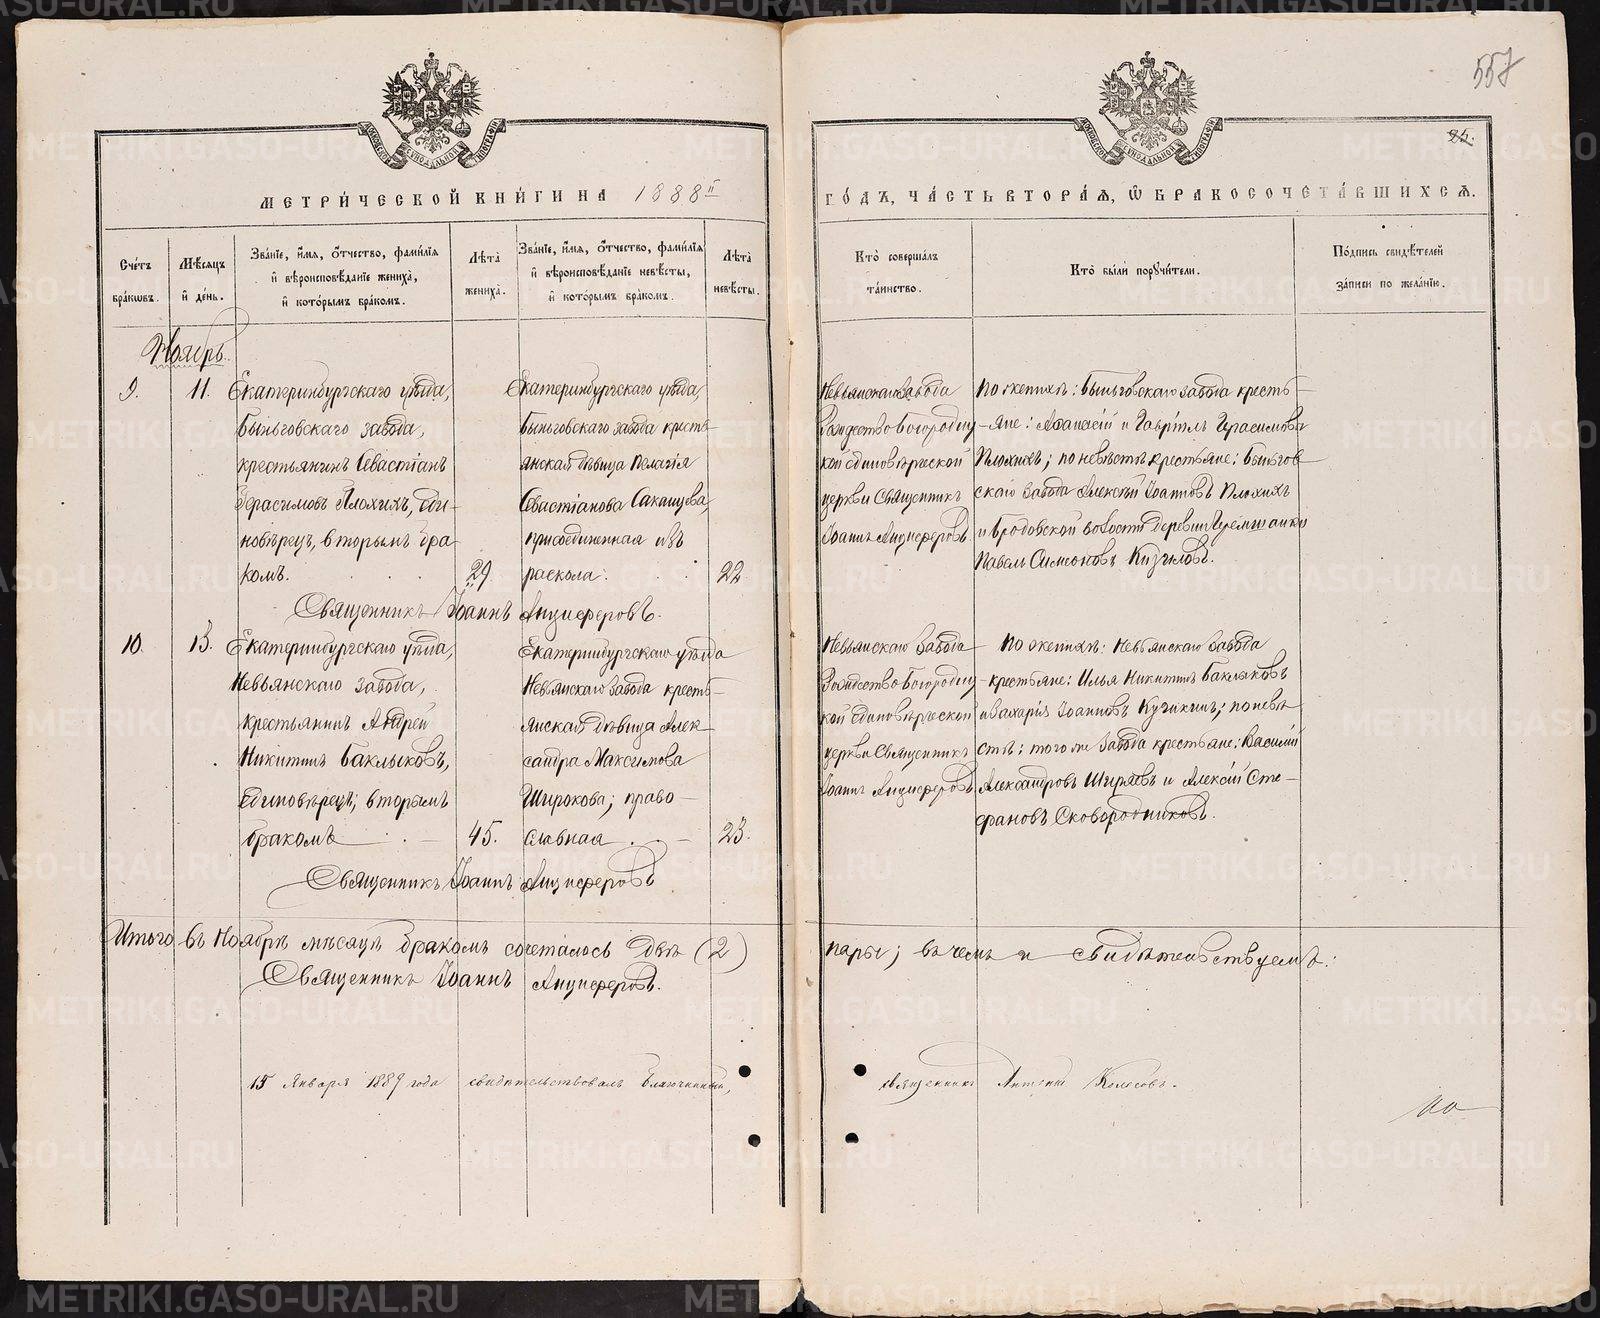 557
25.
МЕТРИ́ЧЕСКОЙ КНИ́ГИ НА 1888
ГО́ДЪ, ЧА́СТЬ ВТОРА́Я, Ѡ БРАКОСОЧЕТА́ВШИХСЯ.
Сче́тъ бра́кωвъ.
Мѣ́сяцъ и҆ де́нь.
Зва́нїе, и҆́мя, ѻ҆́тчество, фами́лїя и҆ вѣроисповѣ́данїе жениха̀, и҆ кото́рымъ бра́комъ.
Лѣ́та жениха̀.
Зва́нїе, и҆́мя, ѻ҆́тчество, фами́лїя и҆ вѣроисповѣ́данїе невѣ́сты, и҆ кото́рымъ бра́комъ.
Лѣ́та невѣ́сты.
Кто̀ соверша́лъ та́инство.
Кто̀ бы́ли порꙋчи́тели.
По́дпись свидѣ́телей за́писи по жела́нїю.
Ноябрь.
9.
11.
Екатеринбургскаго уѣзда,
Быньговскаго завода,
крестьянинъ Севастіанъ
Герасимовъ Плохихъ, еди-
новѣрецъ, вторымъ бра-
комъ.
29.
Екатеринбургскаго уѣзда,
Быньговскаго завода кресть-
янская дѣвица Пелагія
Севастіанова Сакащева,
присоединенная изъ
раскола.
22.
Невьянскаго завода
Рождество-Богородиц-
кой единовѣрческой
церкви Священникъ
Іоаннъ Анциферовъ
По женихѣ: Быньговскаго завода кресть-
яне: Афанасій и Гавріилъ Герасимовы
Плохихъ; по невѣстѣ крестьяне: Быньгов
скаго завода Алексѣй Іоанновъ Плохихъ
и Бродовской волости деревни
Павелъ Симеоновъ
Священникъ Іоаннъ Анциферовъ.
10.
13.
Екатеринбургскаго уѣзда,
Невьянскаго завода,
крестьянинъ Андрей
Никитинъ Баклыковъ,
единовѣрецъ; вторымъ
бракомъ
45.
Екатеринбургскаго уѣзда
Невьянскаго завода кресть-
янская дѣвица Алек
сандра Максимова
Широкова; право-
славная
23.
Невьянскаго завода
Рождество-Богородиц-
кой единовѣрческой
церкви Священникъ
Іоаннъ Анциферовъ
По женихѣ: Невьянскаго завода
крестьяне: Илья Никитинъ Баклыковъ
и Захарія Іоанновъ Кучихинъ; по невѣ
стѣ: того же завода крестьяне: Василій
Александровъ Ширяевъ и Алексѣй Сте-
фановъ Сковородниковъ.
Священникъ Іоаннъ Анциферовъ
Итого въ Ноябрѣ мѣсяцѣ бракомъ сочеталось двѣ (2) пары; въ чемъ и свидѣтельствуемъ:
Священникъ Іоаннъ Анциферовъ.
15 Января 1889 года свидѣтельствовалъ Благочинный, священникъ Антоній Колосовъ.
METRIKI.GASO-URAL.RU